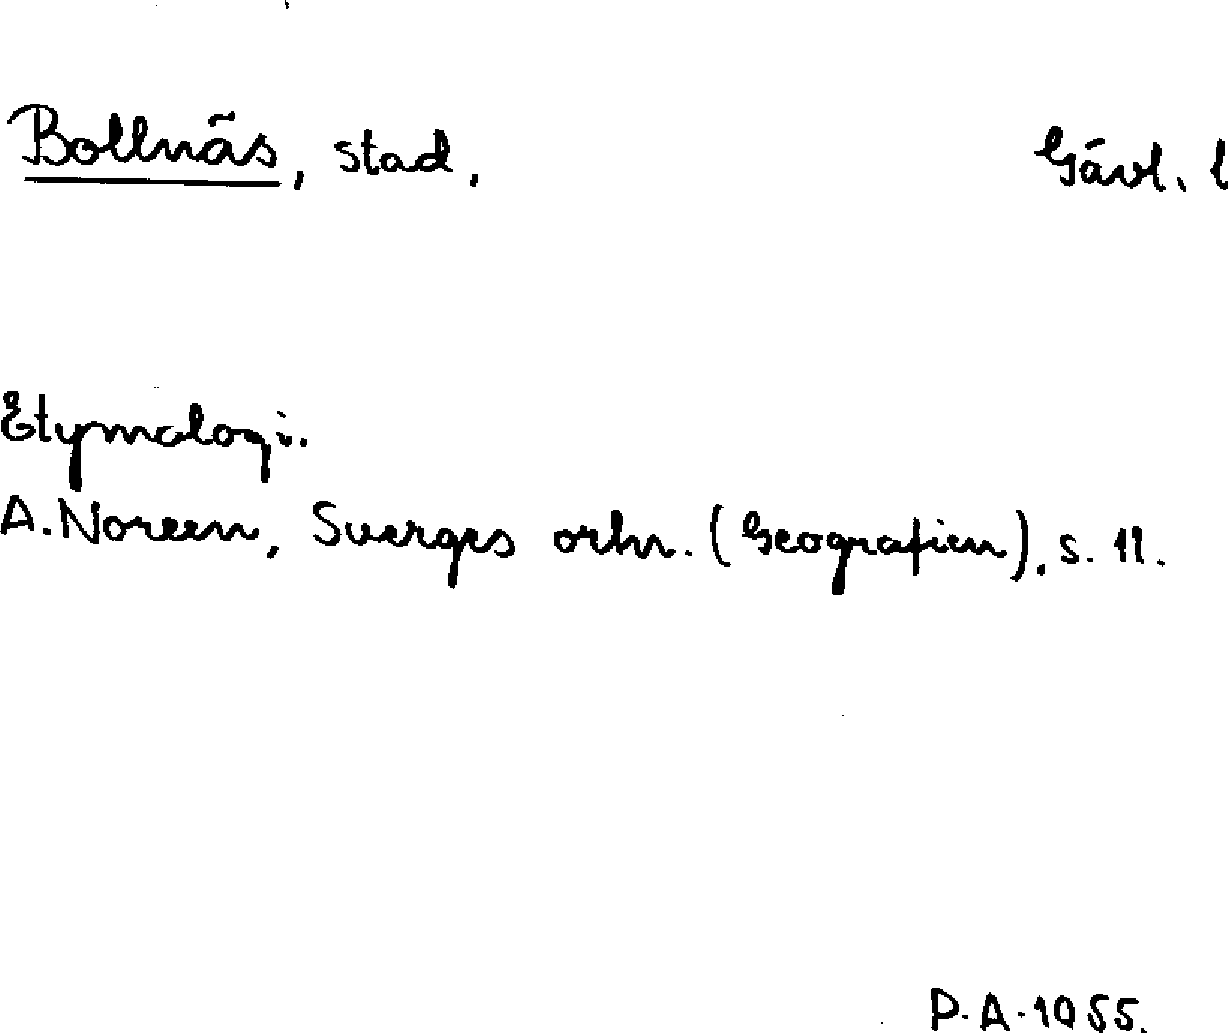 Bollnäs, stad. Gävl. l
Etymologi.
A. Noreen, Sverges ortn. (Geografien), s. 11.
P.A. 1055.